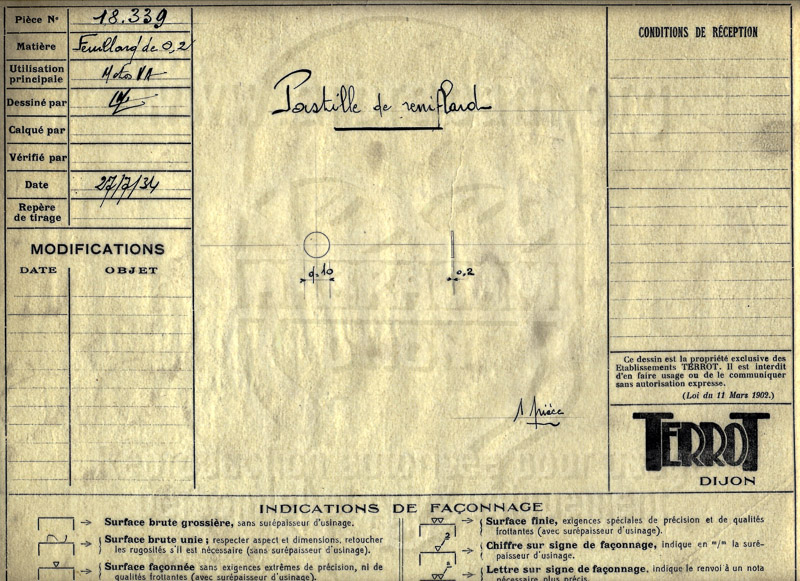 Pièce Nº 18.339
Matière Feuillard de 0,2
Utilisation principale Motos VA
Dessiné par
Calqué par
Vérifié par
Date 27/7/34
Repère de tirage
MODIFICATIONS
DATE OBJET
Pastille de reniflard
d.10
0,2
1 pièce
CONDITIONS DE RÉCEPTION
Ce dessin est la propriété exclusive des
Etablissements TERROT. Il est interdit
d'en faire usage ou de le communiquer
sans autorisation expresse.
(Loi du 11 Mars 1902.)
TERROT
DIJON
INDICATIONS DE FAÇONNAGE
Surface brute grossière, sans surépaisseur d'usinage.
Surface brute unie ; respecter aspect et dimensions, retoucher
les rugosités s'il est nécessaire (sans surépaisseur d'usinage).
Surface façonnée sans exigences extrêmes de précision, ni de
qualités frottantes (avec surépaisseur d'usinage).
Surface finie, exigences spéciales de précision et de qualités
frottantes (avec surépaisseur d'usinage).
2
Chiffre sur signe de façonnage, indique en m/m la suré-
paisseur d'usinage.
Lettre sur signe de façonnage, indique le renvoi à un nota
nécessaire plus précis.